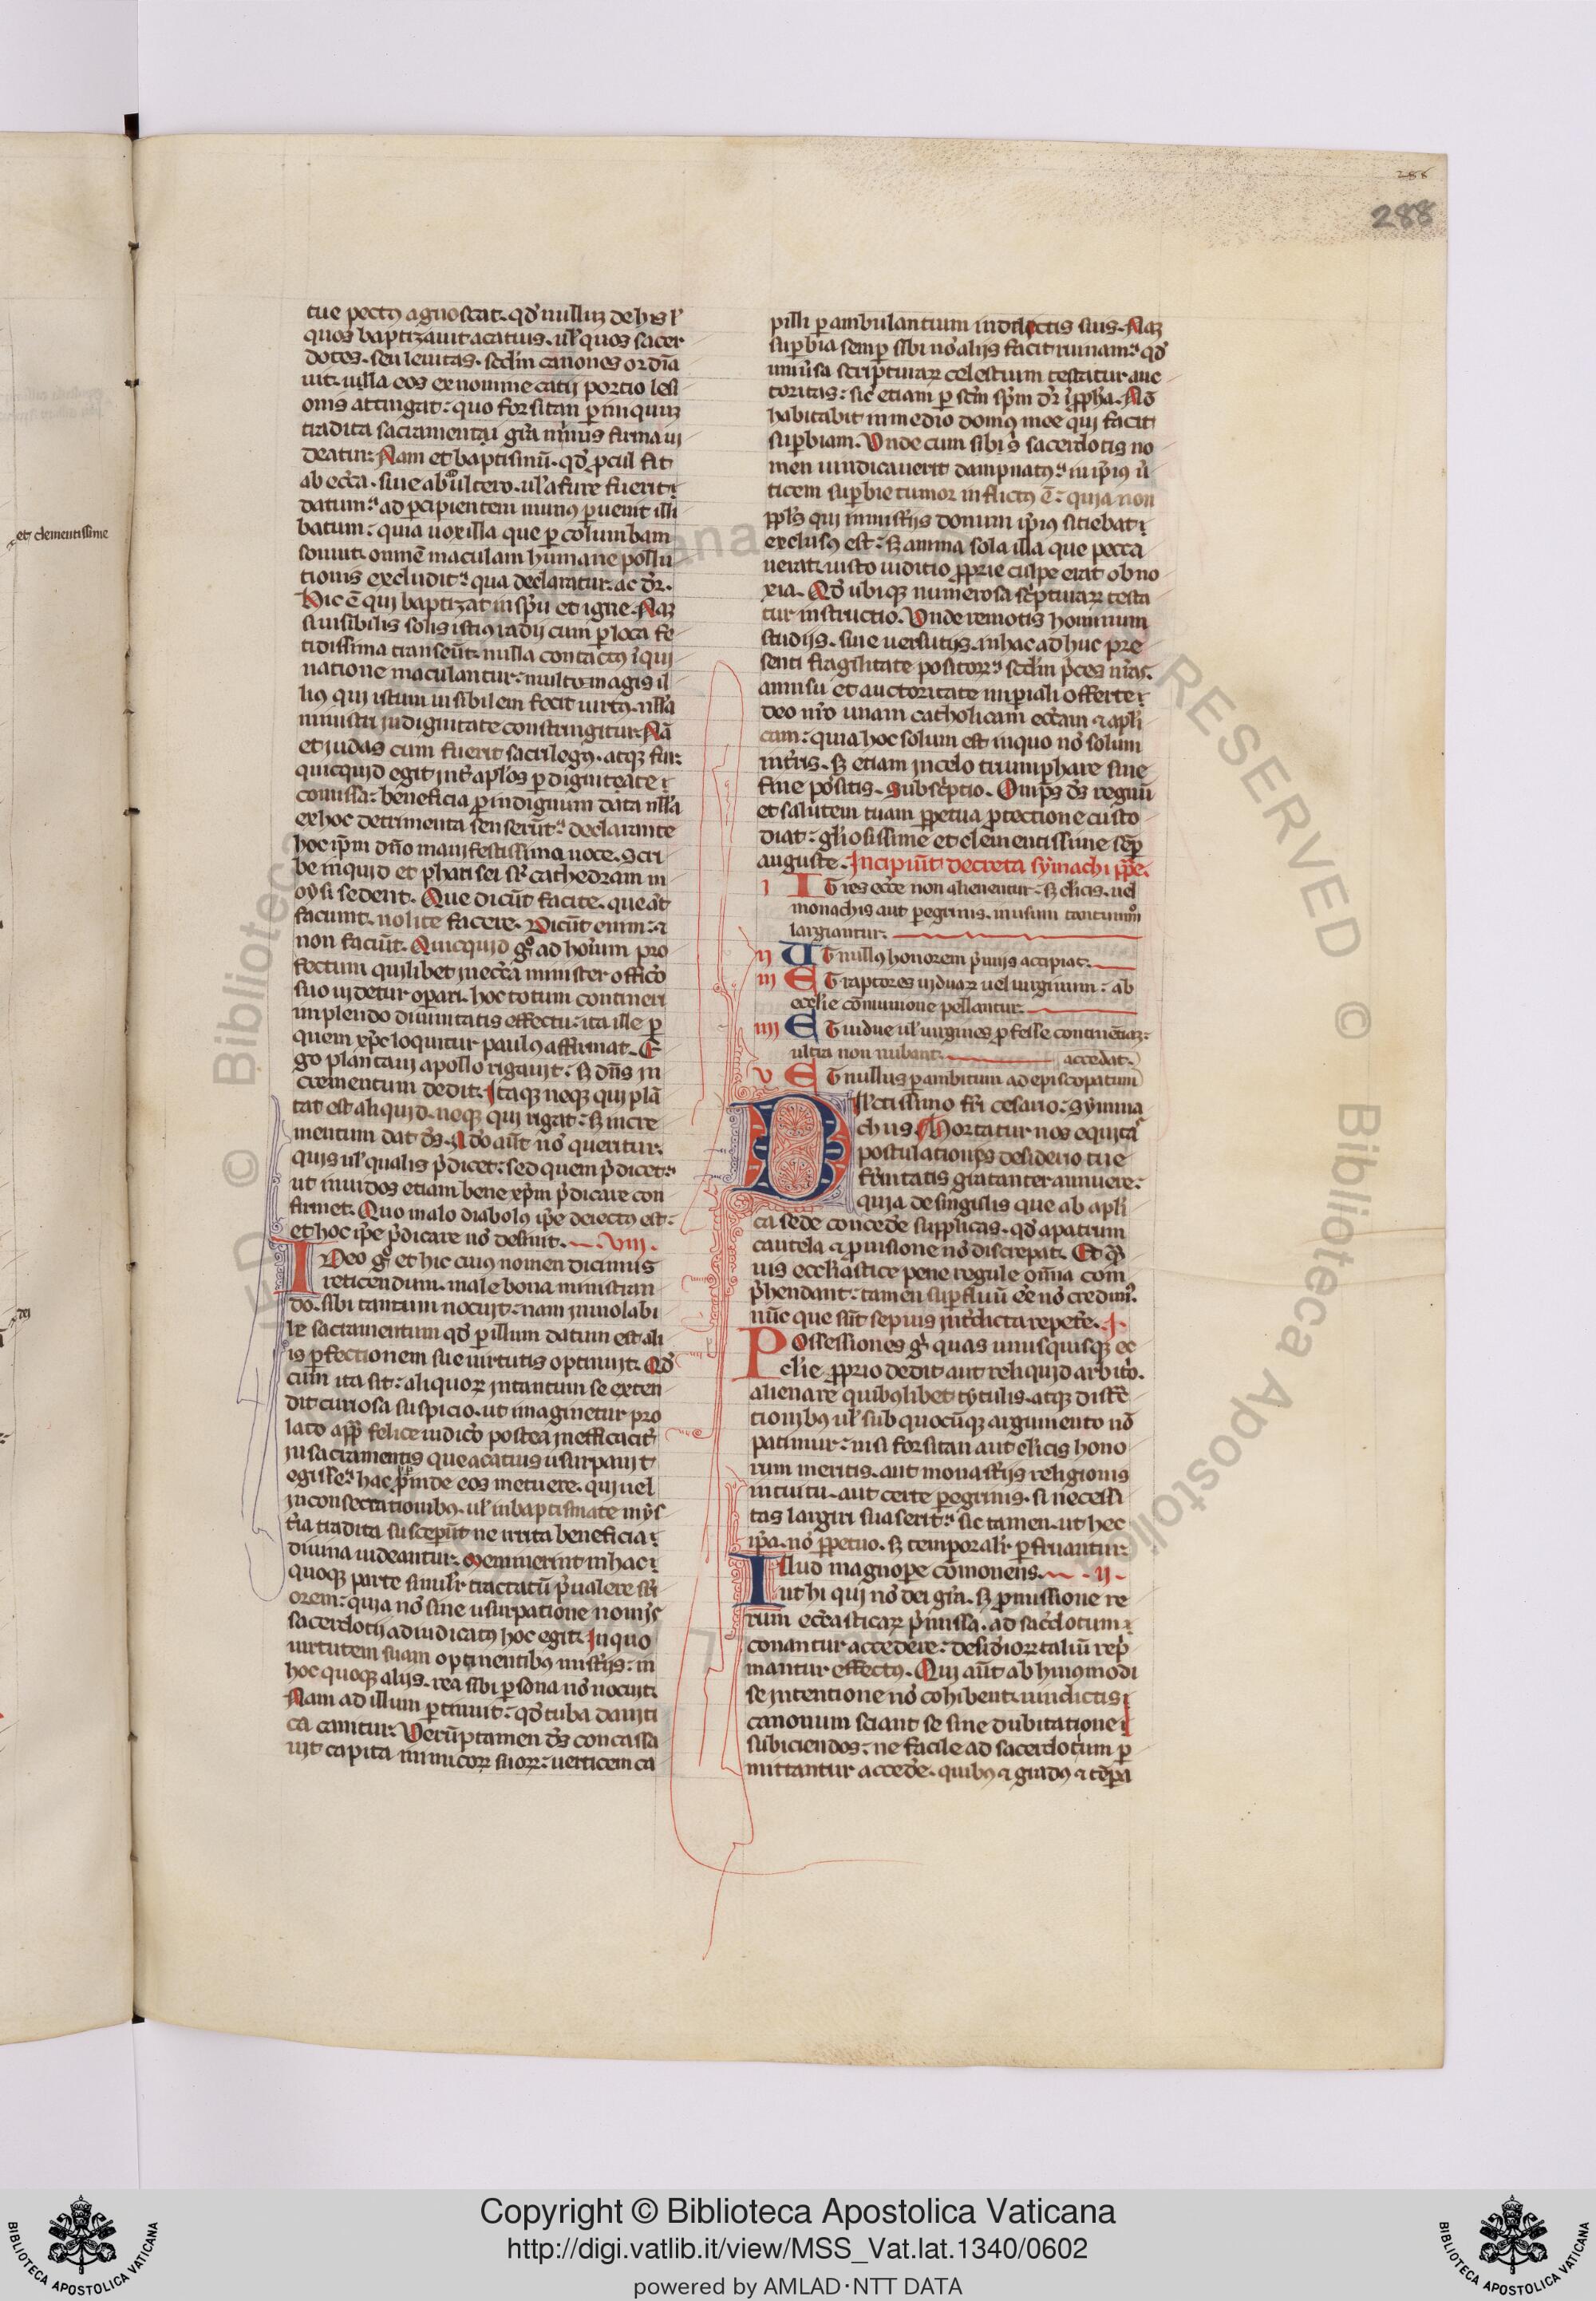 288
et clementissime
tue pectꝰ agnoscat. qd̉ nulluʒ de hys l̉
quos baptizauit acatius. ul̉ quos sacer
dotes. seu leuitas. scd̉m canones ordīa
uit. ulla eos ex nomine catij portio lesi
onis attingat: quo forsitan ꝑ iniquuʒ
tradita sacramentaꝝ gr̄a minus firma ui
deatur. Nam et baptismū. qd̉ ꝓcul sit
ab ecc̄a. siue ab adultero. ul̉ a fure fuerit
datum: ad ꝑcipientem munꝰ ꝑuenit illi
batum: quia uox illa que ꝑ columbam
sonuit. omnē maculam humane pollu
tionis excludit: qua declaratur. ac dr̄.
Hic ē qui baptizat in sp̄u et igne. Naʒ
si uisibilis solis istiꝰ radij cum ꝑ loca fe
tidissima transeūt. nulla contactꝰ iqui
natione maculantur: multo magis il
liꝰ qui istum uisibilem fecit uirtꝰ. nll̉a
ministri indignitate constringitur. Nā
et judas cum fuerit sacrilegꝰ. atqʒ fur.
quicquid egit int̉ apl̉os ꝑ dignitate
comissa: beneficia ꝑ indignum data nll̉a
ex hoc detrimenta senserūt: declarante
hoc ip̄m dn̄o manifestissima uoce. Scri
be inquid et pharisei sr̉ cathedram m
oysi sedent. Que dicūt facite. que aūt
faciunt. nolite facere. Dicūt enim: ⁊
non faciūt. Quicquid gͦ ad hoīum pro
fectum quilibet in ecc̄a minister officio
suo uidetur oꝑari. hoc totum contineri
implendo diuinitatis effectu: ita ille ꝑ
quem xp̄c loquitur paulꝰ affirmat. E
go plantaui apollo rigauit: sʒ dn̄s in
crementum dedit. Itaqʒ neqʒ qui plā
tat est aliquid. neqʒ qui rigat: sʒ incre
mentum dat ds̄. Adeo aūt nō queritur.
quis ul̉ qualis p̄dicet: sed quem p̄dicet:
ut inuidos etiam bene xp̄m p̄dicare con
firmet. Quo malo diabolꝰ ip̄e deiectꝰ est:
et hoc ip̄e p̄dicare nō desinit. VIII.
IDeo gͦ et hic cuiꝰ nomen dicimus
reticendum. male bona ministran
do. sibi tantum nocuit: nam inuiolabi
le sacramentum qd̉ ꝑ illum datum est ali
is ꝑfectionem sue uirtutis optinuit. Qd̉
cum ita sit: aliquoꝝ intantum se exten
dit curiosa suspicio. ut imaginetur pro
lato a pp̄ felice iudicio postea inefficacit̉
in sacramentis que acatius usurpauit
egisse: hac ꝓinde eos metuere. qui uel
in consecrationibꝰ. ul̉ in baptismate mys
t̉ia tradita susceꝑūt ne irrita beneficia
diuina uideantur. Meminerint in hac
quoqʒ parte simil̉r tractatū p̄ualere suꝑi
orem: quia nō sine usurpatione nomis
sacerdotij adiudicatꝰ hoc egit. In quo
uirtutem suam optinentibꝰ mist̉ijs: in
hoc quoqʒ alijs. rea sibi ꝑsona nō nocuit.
Nam ad illum ꝑtinuit: qd̉ tuba dauiti
ca canitur. Verūptamen ds̄ concassa
uit capita inimicoꝝ suoꝝ: uerticem ca
pilli ꝑambulantium in delictis suis. Naʒ
suꝑbia semꝑ sibi nō alijs facit ruinam: qd̉
uniu̓sa scripturaꝝ celestium testatur auc
toritas: sic etiam ꝑ scm̄ sp̄m dr̄ i ꝓph̓a. Nō
habitabit in medio domꝰ mee qui facit
suꝑbiam. Vnde cum sibi s̉ sacerdotis no
men uindicauerit dampnatꝰ: in ip̄ius u̓
ticem suꝑbie tumor inflictꝰ ē: quia non
ppl̉s qui in mist̉ijs donum ip̄ius sitiebat
exclusꝰ est: sʒ anima sola illa que pecca
uerat. iusto iuditio ꝓprie culpe erat obno
xia. Qd̉ ubiqʒ numerosa sc̉pturaꝝ testa
tur instructio. Vnde remotis hominum
studijs. siue uersutijs. in hac adhuc pre
senti fragilitate positoꝝ: scd̉m p̄ces nr̄as.
annisu et auctoritate imꝑiali offerte
deo nr̄o unam catholicam ecc̄am ⁊ apl̉i
cam: quia hoc solum est in quo nō solum
in t̉ris. sʒ etiam in celo triumphare sine
fine possitis. Subscptio. Omps̄ ds̄ regnū
et salutem tuam ꝑpetua ꝓtectione custo
diat: gl̉iosissime et clementissime semꝑ
auguste. Incipiūt decreta symachi pp̄e.
I UT res ecc̄e non alienentur: sʒ cl̉icis. uel
monachis aut ꝑegrinis. in usum tantummͦ
largiantur.
II UT nullꝰ honorem p̄uijs accipiat.
III ET raptores uiduaꝝ uel uirginum: ab
ecclie cōmunione pellantur.
IIII ET uidue ul̉ uirgines ꝓfesse continētiaʒ:
ultra non nubant. accedat.
V ET nullus ꝑ ambitum ad episcopatum
DIlectissimo fr̄i cesario: symma
chus. Hortatur nos equitas
postulationis desiderio tue
fr̄nitatis gratanter annuere:
quia de singulis que ab apl̉i
ca sede concede̓ supplicas. qd̉ a patrum
cautela ⁊ ꝓuisione nō discrepat. Et q̉
uis ecclesiastice pene regule oīna com
p̄hendant: tamen suꝑfluū ēe nō credimꝰ.
nūc que sūt sepius int̉dicta repete̓. I.
POssessiones gͦ quas unusquisqʒ ec
clie ꝓprio dedit aut reliquid arbit̉o.
alienare quibꝰlibet tytulis. atqʒ dist̉c
tionibꝰ ul̉ sub quocūqʒ argumento nō
patimur: nisi forsitan aut cl̉icis hono
rum meritis. aut monast̉ijs religionis
intuitu. aut certe ꝑegrinis. si necessi
tas largiri suaserit: sic tamen. ut hec
ip̄a. nō ꝑpetuo. sʒ temporalit̉ ꝑfruantur.
Illud magnoꝑe cōmonens. II.
ut hi qui nō dei gr̄a. sʒ ꝓmissione re
rum ecc̄asticaꝝ p̄missa. ad sac̓dotum
conantur accedere: desid̓ioꝝ taliū rep̓
mantur effectꝰ. Qui aūt ab huiꝰmodi
se intentione nō cohibent. uindictis
canonum sciant se sine dubitatione
subiciendos: ne facile ad sacerdotium ꝑ
mittantur accede̓. quibꝰ ⁊ gradꝰ ⁊ tēꝑa
Copyright © Biblioteca Apostolica Vaticana
http://digi.vatlib.it/view/MSS_Vat.lat.1340/0602
powered by AMLAD·NTT DATA
BIBLIOTECA APOSTOLICA VATICANA
BIBLIOTECA APOSTOLICA VATICANA